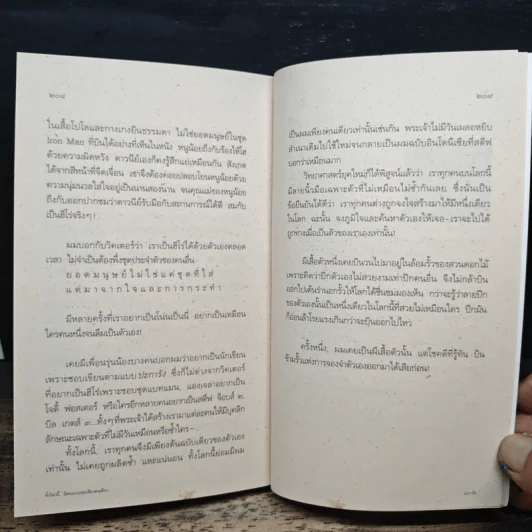 ๒๐๘
ในเสื้อโปโลและกางเกงยีนธรรมดา ไม่ใช่ยอดมนุษย์ในชุด
Iron Man ที่บินได้อย่างที่เห็นในหนัง หนูน้อยถึงกับร้องไห้โฮ
ด้วยความผิดหวัง ดาวนีย์เองก็คงรู้สึกแย่เหมือนกัน สังเกต
ได้จากสีหน้าที่จืดเจื่อน เขาจึงต้องค่อยปลอบโยนหนูน้อยด้วย
ความนุ่มนวลใส่ใจอยู่เป็นนานสองนาน จนคุณแม่ของหนูน้อย
ถึงกับออกปากชมว่าดาวนีย์รับมือกับสถานการณ์ได้ดี สมกับ
เป็นฮีโร่จริงๆ!
ผมบอกกับวิคเตอร์ว่า เราเป็นฮีโร่ได้ด้วยตัวเองตลอด
เวลา ไม่จำเป็นต้องพึ่งชุดประจำตัวของคนอื่น
ยอดมนุษย์ไม่ใช่แค่ชุดที่ใส่
แต่มาจากใจและการกระทำ
มีหลายครั้งที่เราอยากเป็นโน่นเป็นนี่ อยากเป็นเหมือน
ใครคนหนึ่งจนลืมเป็นตัวเอง!
เคยมีเพื่อนรุ่นน้องบางคนบอกผมว่าอยากเป็นนักเขียน
เพราะชอบเขียนตามแบบ ปะการัง ซึ่งก็ไม่ต่างจากวิคเตอร์
ที่อยากเป็นฮีโร่เพราะชอบชุดแบทแมน, แองเจล่าอยากเป็น
โจดี้ ฟอสเตอร์ หรือใครอีกหลายคนอยากเป็นสตีฟ จ็อบส์ ๒,
บิล เกตส์ ๓...ทั้งๆที่พระเจ้าได้สร้างเรามาแต่ละคนให้มีบุคลิก
ลักษณะเฉพาะตัวที่ไม่มีวันเหมือนหรือซ้ำใคร–
ทั้งโลกนี้, เราทุกคนจึงมีเพียงต้นฉบับเดียวของตัวเอง
เท่านั้น ไม่เคยถูกผลิตซ้ำ และแน่นอน ทั้งโลกนี้ย่อมมีผม
๒๐๙
เป็นผมเพียงคนเดียวเท่านั้นเช่นกัน พระเจ้าไม่มีวันเผลอหยิบ
สำเนาเดิมไปใช้ใหม่จนกลายเป็นผมฉบับอินโดนีเซียที่สตีฟ
บอกว่าเหมือนมาก
วิทยาศาสตร์ยุคใหม่ก็ได้พิสูจน์แล้วว่า เราทุกคนบนโลกนี้
มีลายนิ้วมือเฉพาะตัวที่ไม่เหมือนไม่ซ้ำกันเลย ซึ่งนั่นเป็น
ข้อยืนยันได้ดีว่า เราทุกคนต่างถูกจงใจสร้างมาให้มีหนึ่งเดียว
ในโลก ฉะนั้น จงภูมิใจและค้นหาตัวเองให้เจอ–เราจะไปได้
ถูกทางเมื่อเป็นตัวของเราเองเท่านั้น!
ผีเสื้อตัวหนึ่งเคยบินวนไปมาอยู่ในล้อมรั้วของสวนดอกไม้
เพราะคิดว่าปีกตัวเองไม่สวยงามเท่าปีกคนอื่น จึงไม่กล้าบิน
ออกไปเต้นรำนอกรั้วให้โลกได้ชื่นชมมองเห็น กว่าจะรู้ว่าลายปีก
ของตัวเองนั้นเป็นหนึ่งเดียวในโลกนี้ที่สวยไม่เหมือนใคร ปีกมัน
ก็อ่อนล้าโรยแรงเกินกว่าจะบินออกไปไหว
ครั้งหนึ่ง, ผมเคยเป็นผีเสื้อตัวนั้น แต่โชคดีที่รู้ทัน บิน
ข้ามรั้วแห่งการจองจำตัวเองออกมาได้เสียก่อน!